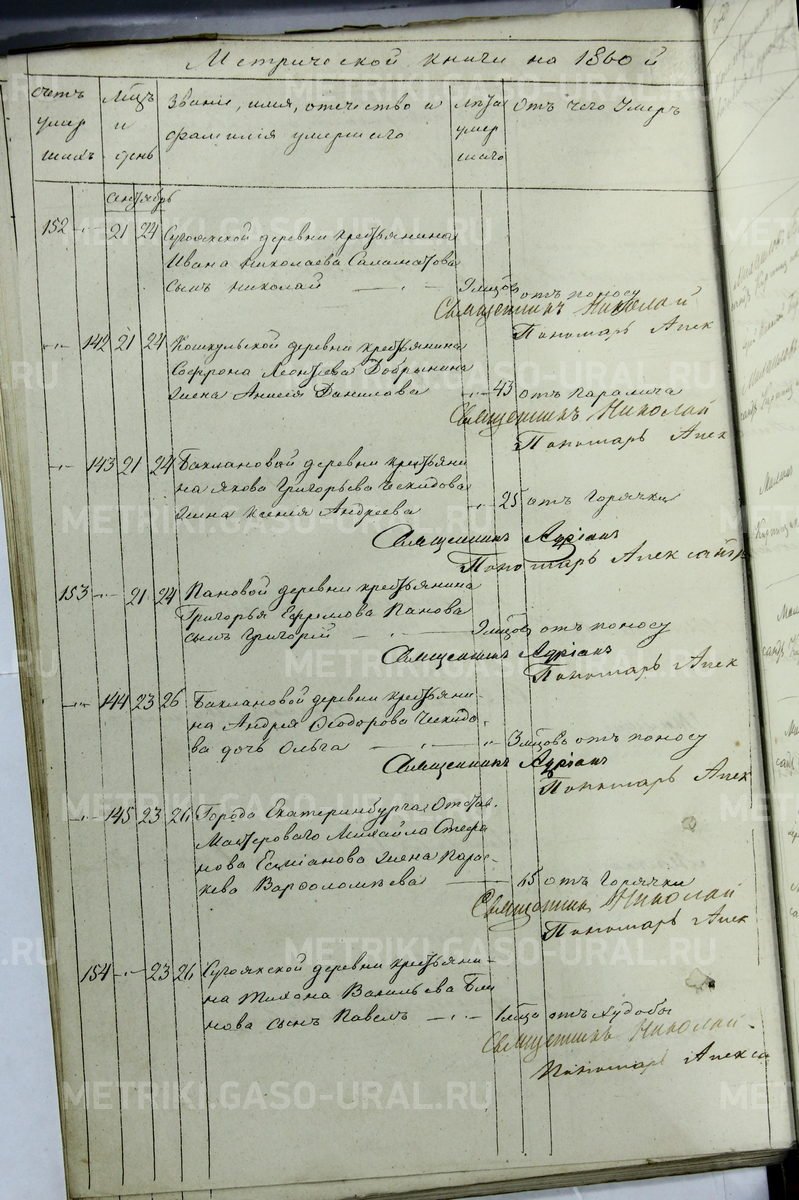 Метрической книги на 1860й
счетъ умер шихъ
Мцъ и день
Званіе, имя, отечество и фамилія умершаго
Лѣта умер шаго
Отъ чего умеръ
Сентябрь
152 21 24 Сугоякской деревни крестьянина
Ивана Николаева Саламатова
сынъ Николай 9 мцовъ отъ поносу
Священникъ Николай
Пономарь Алек
142 21 24 Кошкульской деревни крестьянина
Софрона Леонтьева Добрынина
жена Анисія Данилова 43 отъ паралича
Священникъ Николай
Пономарь Алек
143 21 24 Баклановой деревни крестьяни
на Якова Григорьева Ческидова
жена Ксенія Андреева 25 отъ горячки
Священникъ Адріанъ
Пономарь Александръ
153 21 24 Пановой деревни крестьянина
Григорья Ефремова Панова
сынъ Григорій 9 мцовъ отъ поносу
Священникъ Адріанъ
Пономарь Алек
144 23 26 Баклановой деревни крестьяни-
на Андрея Ѳеодорова Ческидо-
ва дочь Ольга 3 мцовъ отъ поносу
Священникъ Адріанъ
Пономарь Алек
145 23 26 Города Екатеринбурга Отстав.
Мастероваго Михайла Стефа
нова жена Парас-
кева Варфоломѣева 65 отъ горячки
Священникъ Николай
Пономарь Алек
154 23 26 Сугоякской деревни крестьяни-
на Тихона Васильева Бли
нова сынъ Павелъ 1 мца отъ худобы
Священникъ Николай
Пономарь Алекса
METRIKI.GASO-URAL.RU